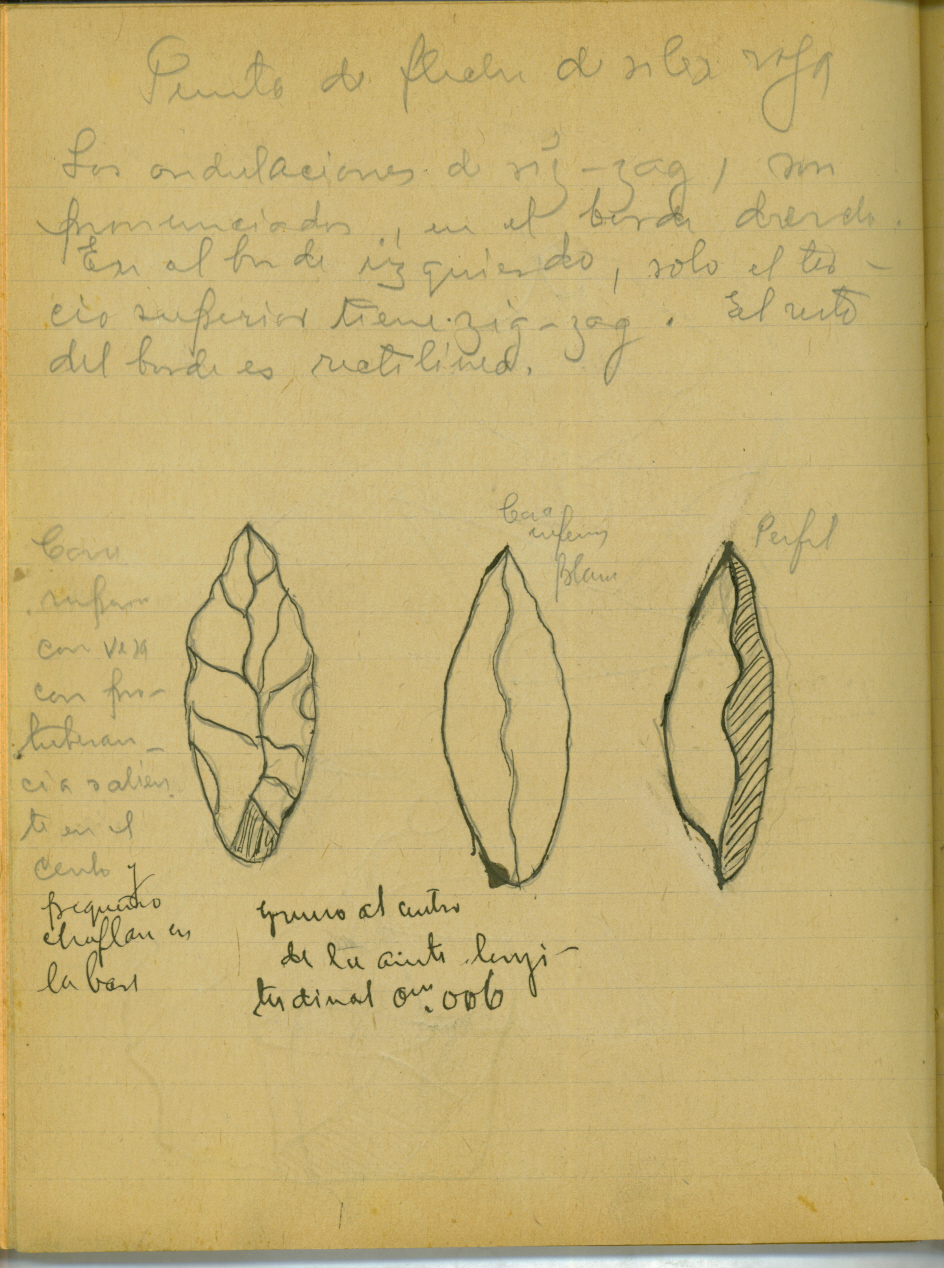 Punta de flecha d silex roja
Las ondulaciones d zig-zag, son
pronunciadas, en el borde derecho.
En el borde izquierdo, solo el ter-
cio superior tiene zig-zag. El resto
del borde es rectilineo.
Cara
inferior
plana
Perfil
Cara
superior
convexa
con pro-
tuberan-
cia salien
te en el
centro y
pequeño
chaflan en
la base
grueso al centro
de la arista longi-
tudinal 0m.006